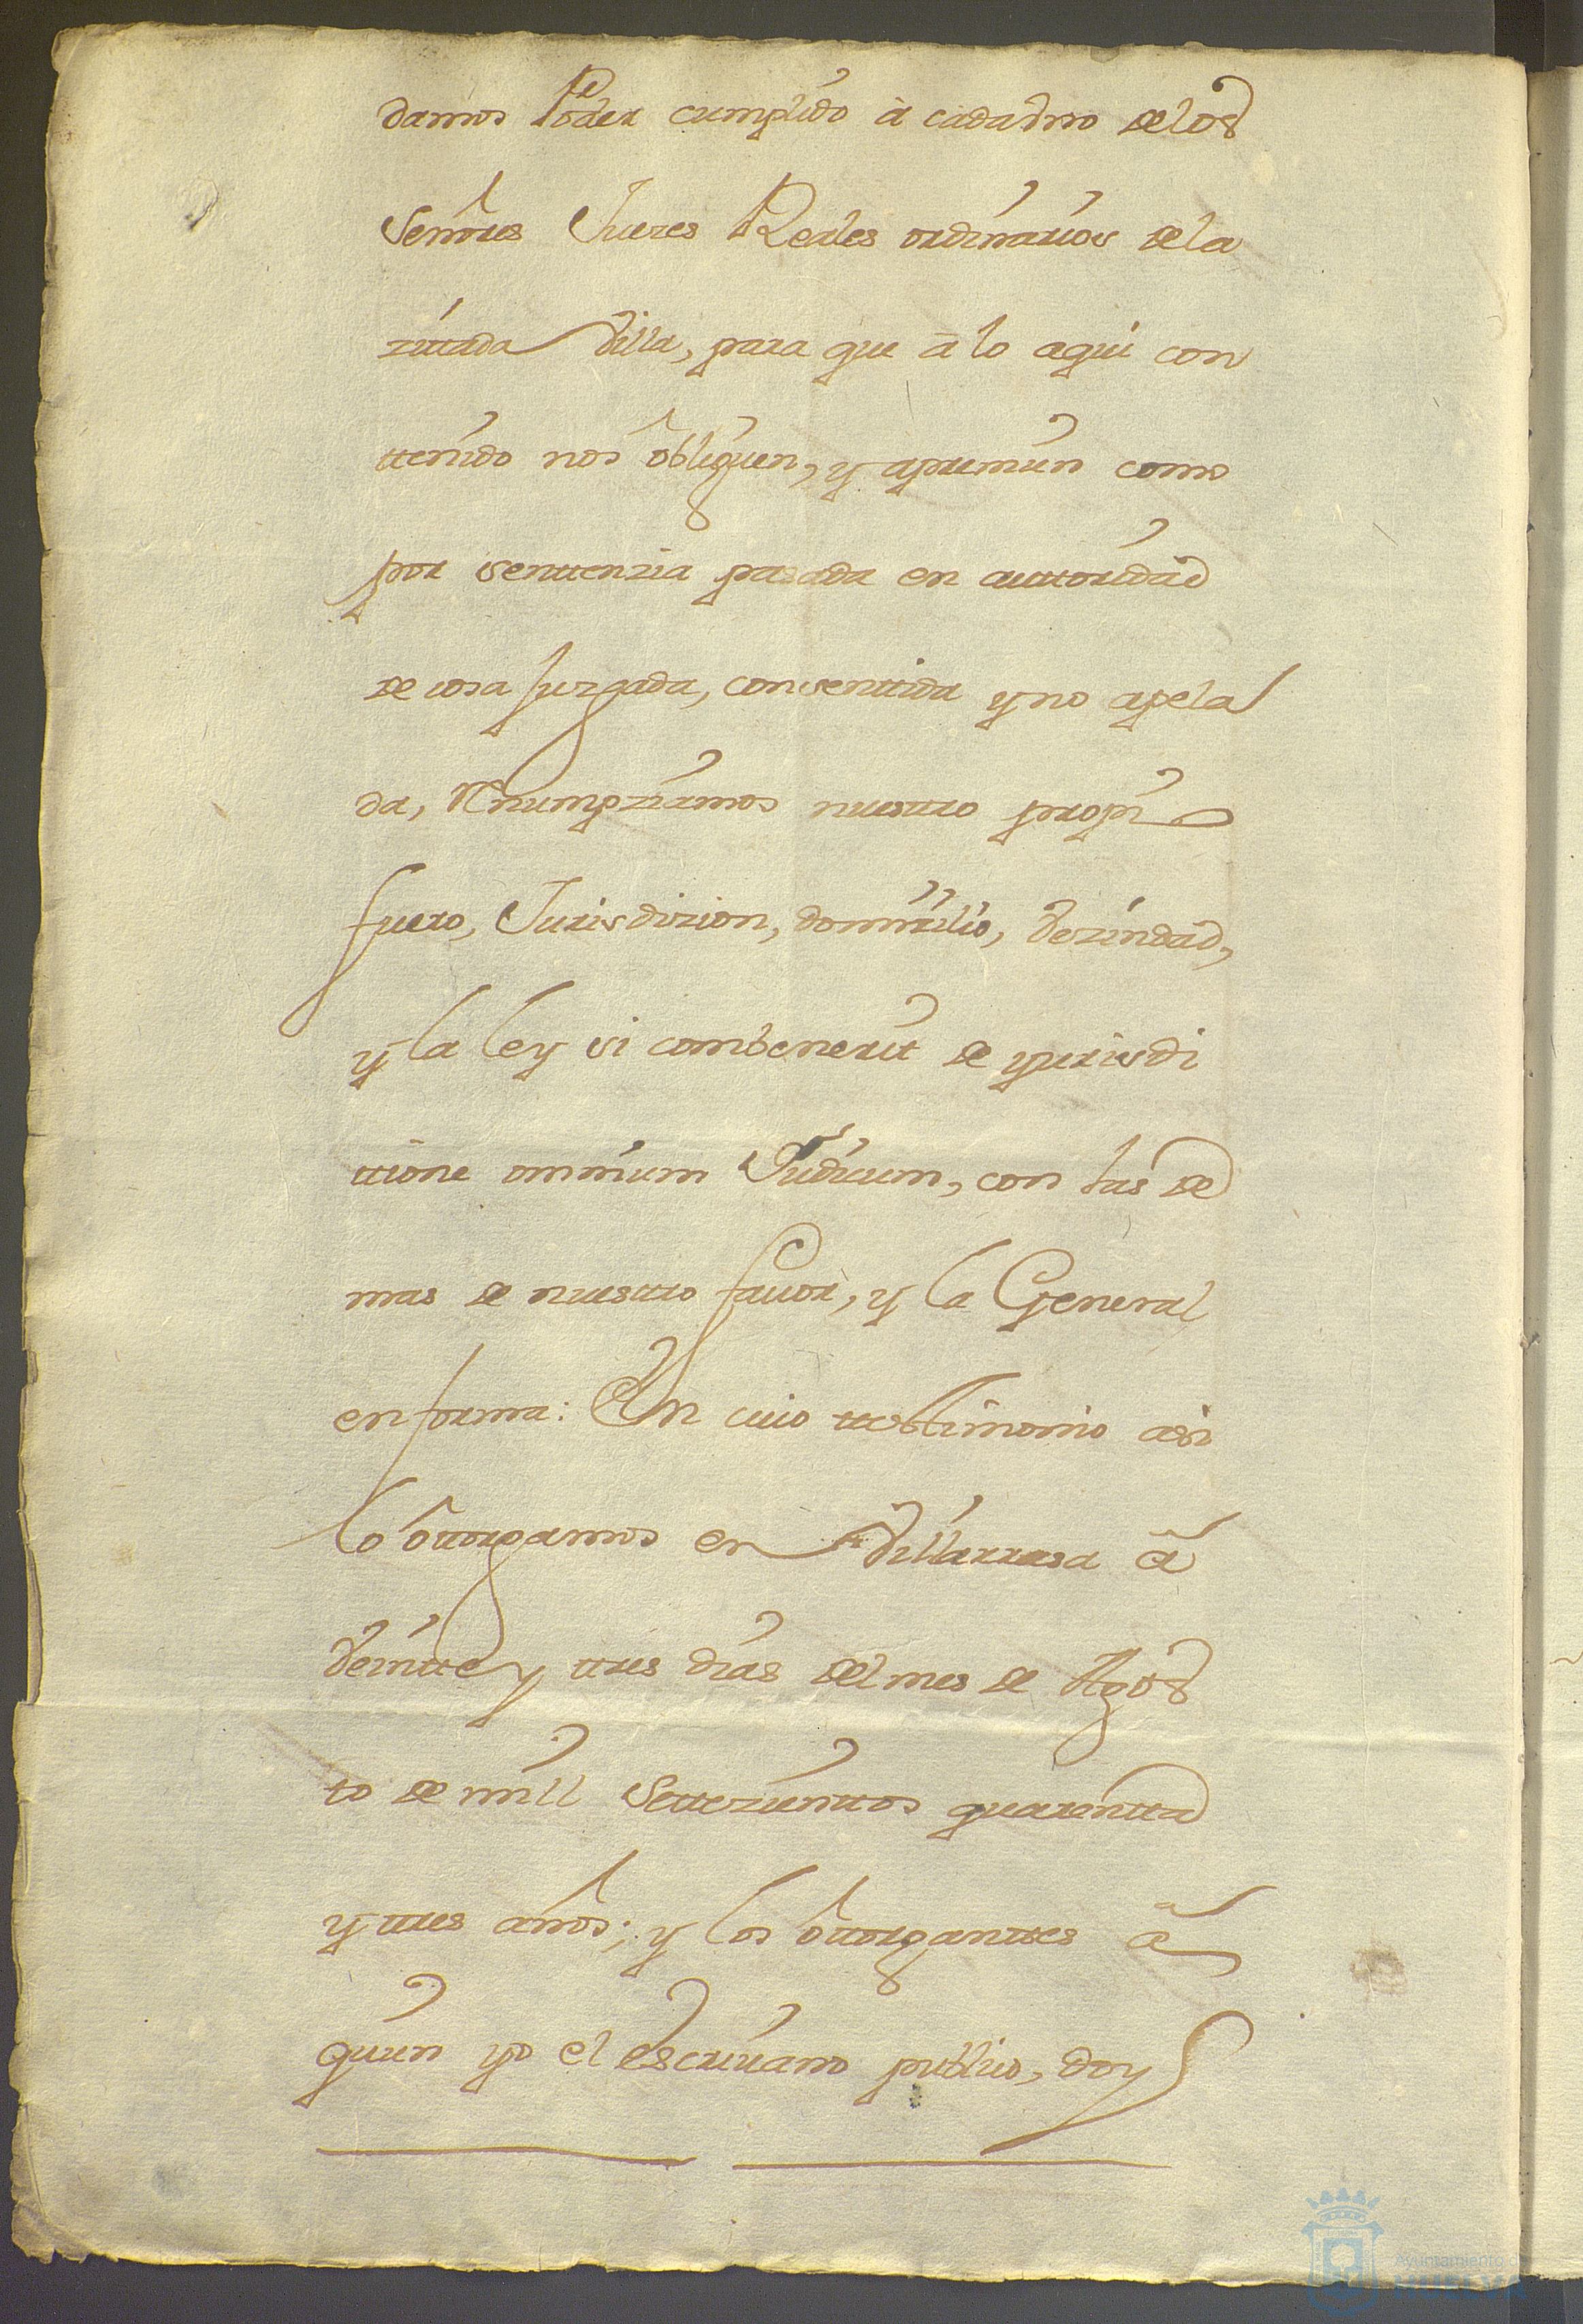 damos Poder cumplido à cada vno de los
Señores Jueces Reales ordinarios de la
zitada villa, para que â lo aqui con
ttenido nos obliguen, y apremien como
por senttenzia pasada en auttoridad
de cosa Juzgada, consenttida y no apela
da, Renumpziamos nuesttro propio
fuero, Jurisdizion, domizilio, vezindad,
y la ley si combenerit de yurisdi
ttione omnium Judicum, con las de
mas de nuesttro favor, y la General
en forma: En cuio ttestimonio asi
lo ôttorgamos en Villarrasa â
veintte y ttres dias del mes de Agos
to de mill Settezienttos quarentta
y ttres años; y los ôttorganttes â
quien yo el escrivano publico, doy
Ayuntamiento de
HUELVA